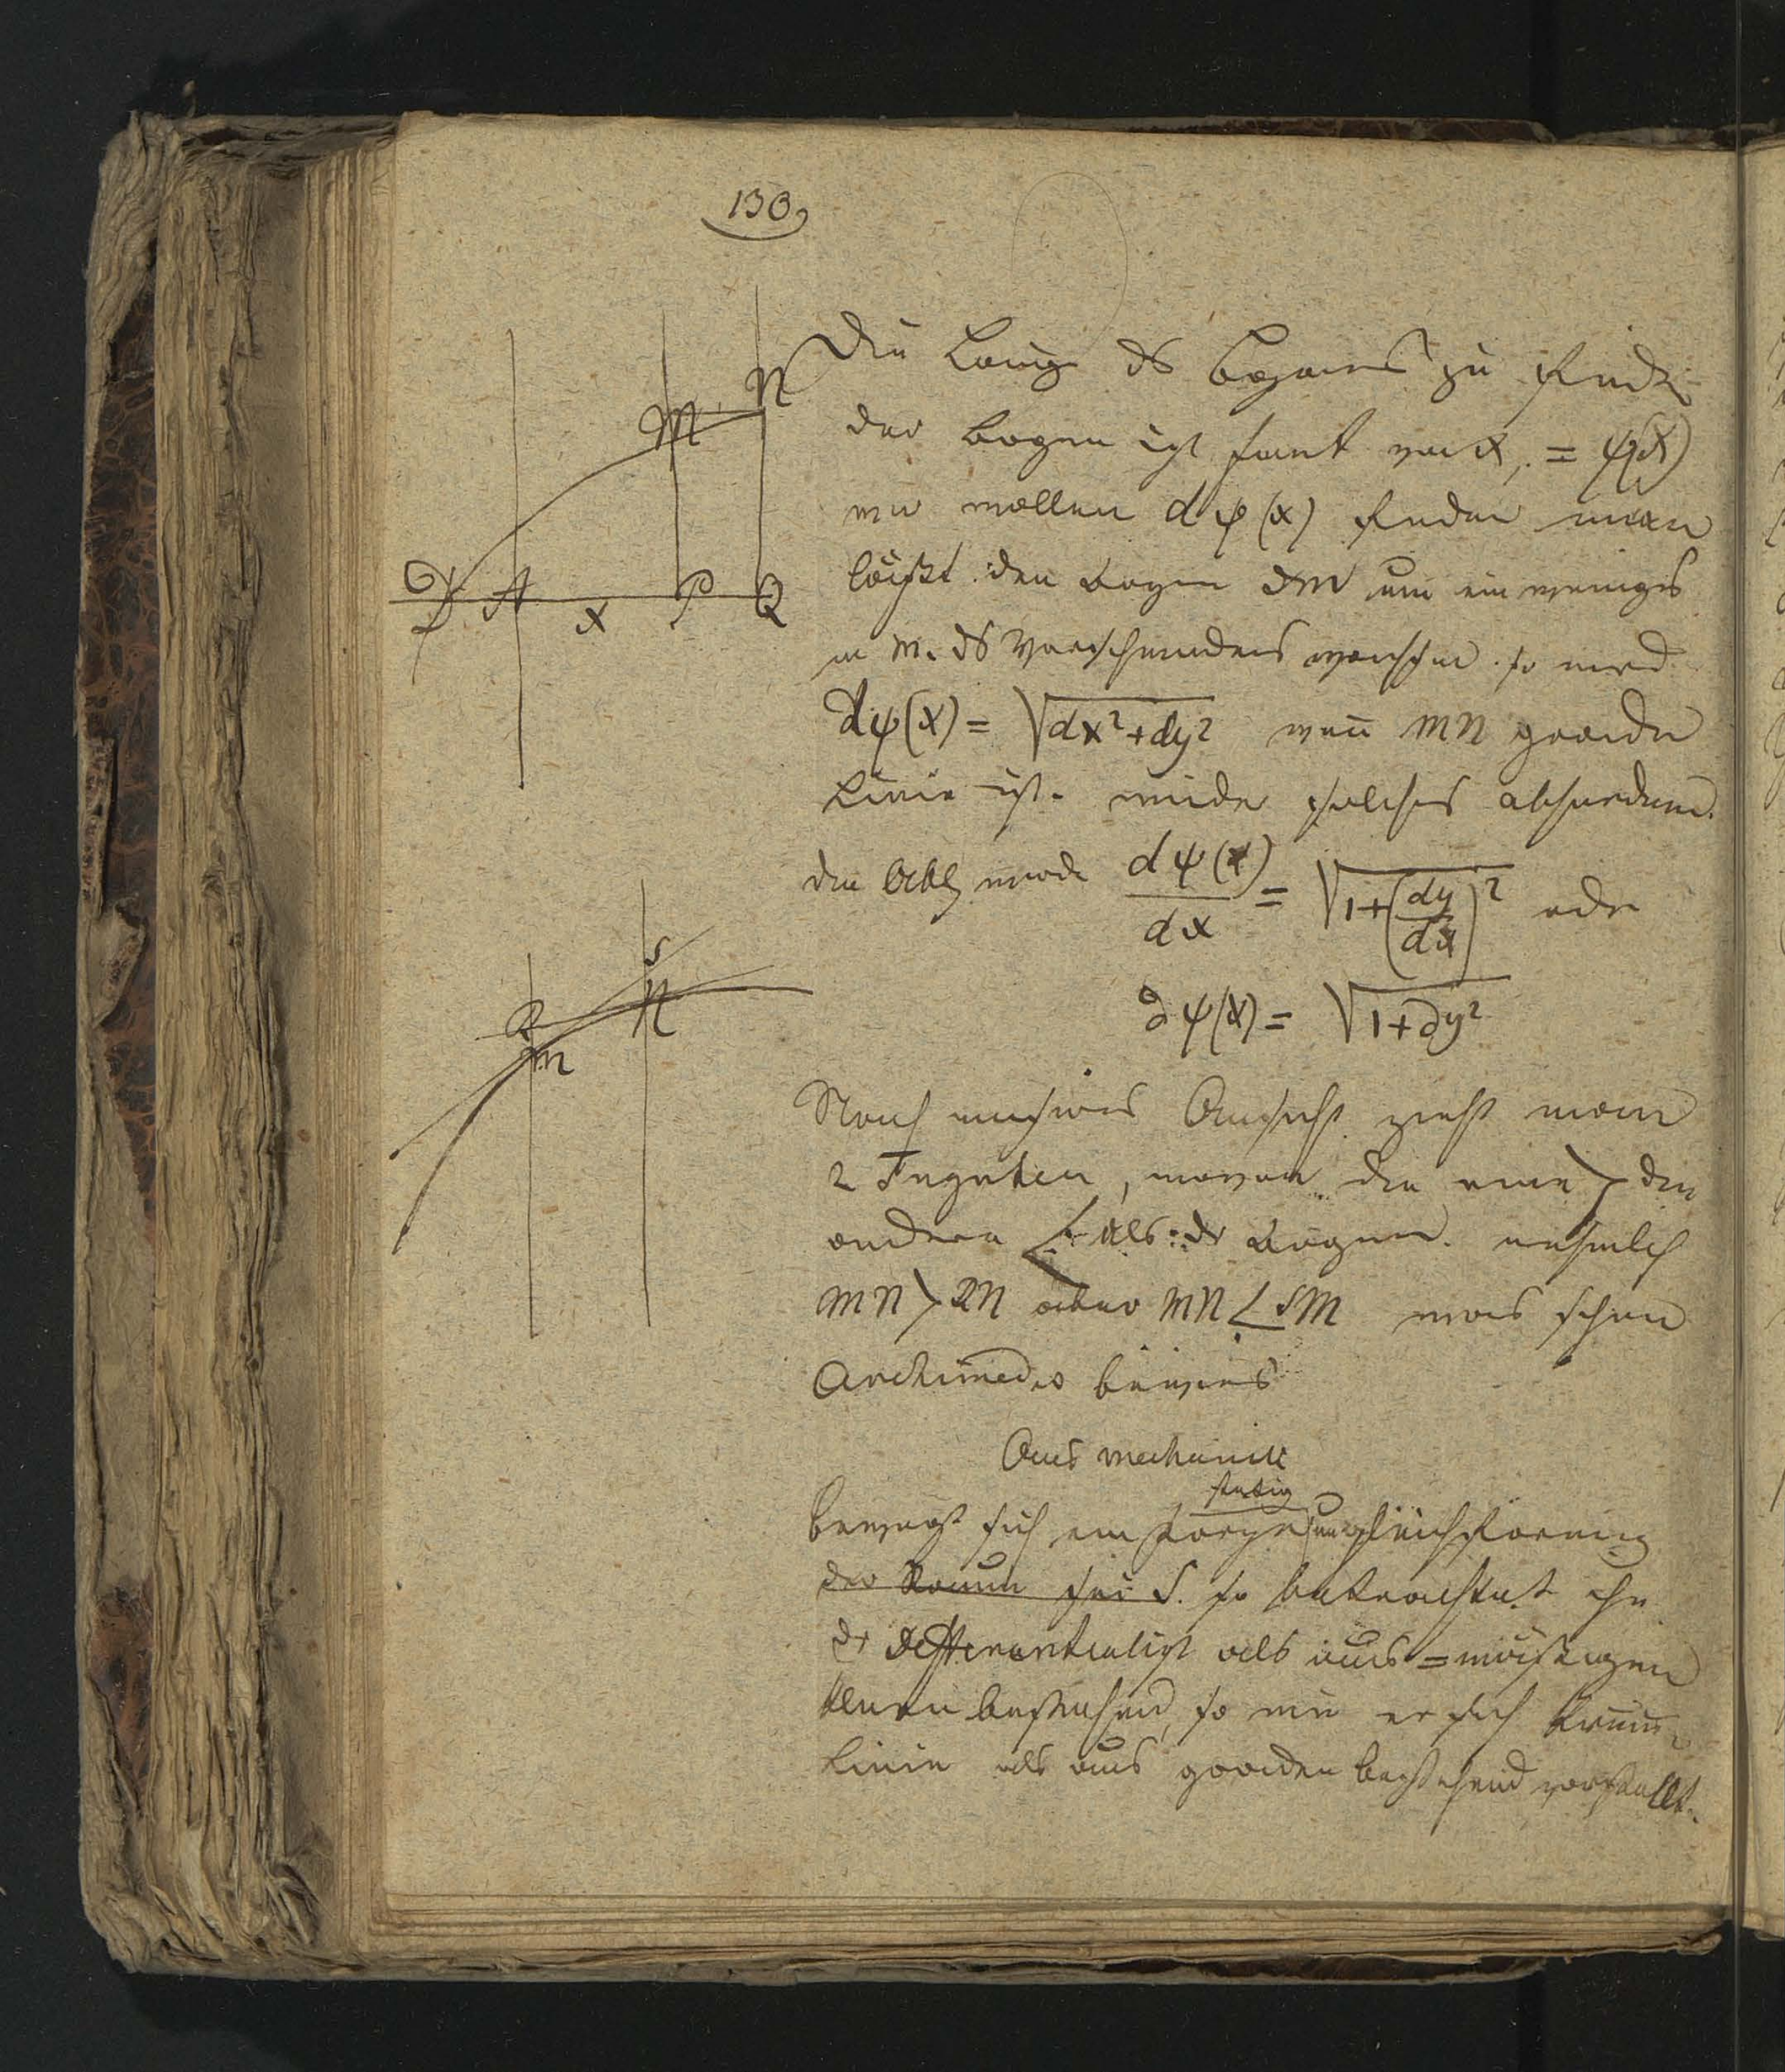 130,
Die Länge ds Bogens zu finden
der Bogen ist funct von x, = ψ(x)
wir wollen dψ(x) finden man
läßt den Bogen DM um ein weniges
in M. ds Verschwindens wachsen. so wird
dψ(x) = √dx²+dy² wen̄ MN gerade
Linie ist. wieder solches absurdum.
die Abltg wird dψ(x)/dx = √1+(dy/dx)² oder
∂ψ(x) = √1+∂y²
Nach unsrer Ansicht zieht man
2 Tngnten, wovon die eine > die
andere < als dr Bogen. nehmlich
MN > RN aber MN < SM was schon
Archimedes bewies
Aus Mechanik
stetig
Bewegt sich ein Körper ungleichförmig
der Raum sei S. so betrachtet ihn
dr Differentialist als aus =mäßigen
bestehend, so wie er sich krum̄
Linie als aus geraden bestehend vorstellt.
M N
D A x P Q
S
R N
M